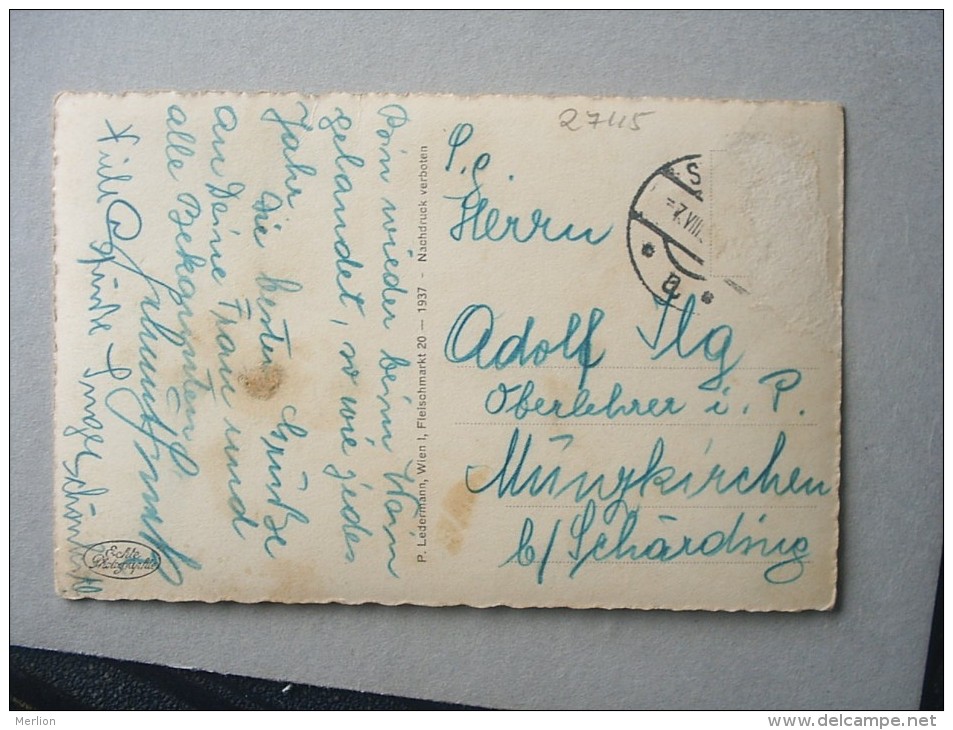 27415
Bin wieder beim Wein
gelandet, so wie jedes
Jahr
Die besten Grüße
an Deine Frau und
alle Bekannten
Viele Grüße
Echte
Photographie
P. Ledermann, Wien I, Fleischmarkt 20 — 1937 - Nachdruck verboten
S
7.VIII.
P. g.
Herrn
Adolf Ilg
Oberlehrer i. P.
Münzkirchen
b/ Schärding
Merlion
http://www.delcampe.net